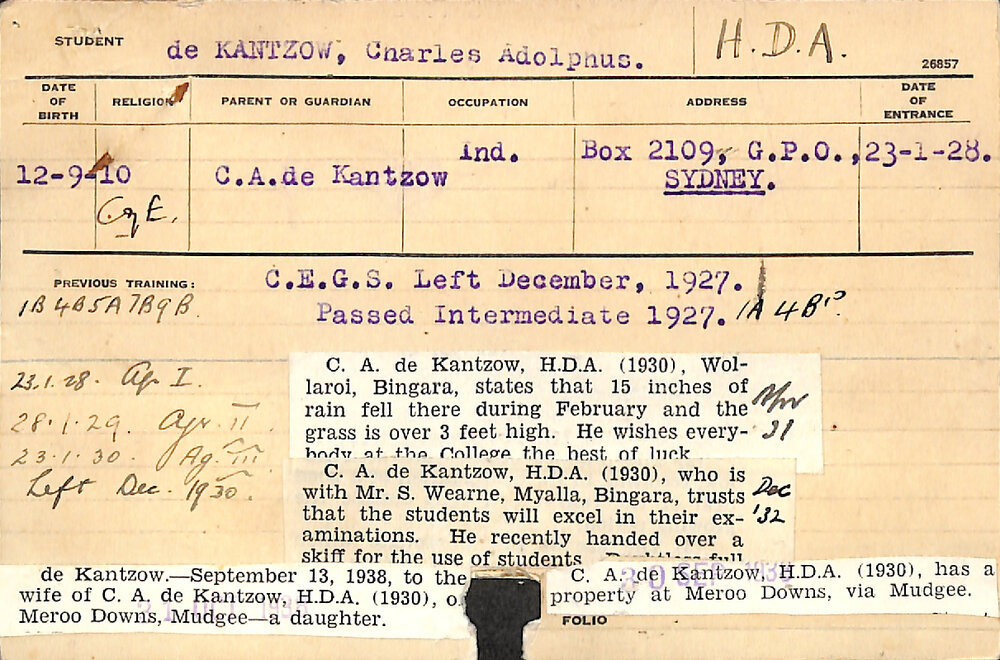 STUDENT de KANTZOW, Charles Adolphus. H.D.A. 26857
DATE OF BIRTH RELIGION PARENT OR GUARDIAN OCCUPATION ADDRESS DATE OF ENTRANCE
12-9-10 C of E. C.A.de Kantzow Ind. Box 2109, G.P.O., 23-1-28.
SYDNEY.
PREVIOUS TRAINING: C.E.G.S. Left December, 1927.
1B 4B 5A 7B 9B. Passed Intermediate 1927. 1A 4B's?
23.1.28. Agr I.
28.1.29. Agr. II
23.1.30. Ag. III
Left Dec. 1930.
C. A. de Kantzow, H.D.A. (1930), Wol-
laroi, Bingara, states that 15 inches of
rain fell there during February and the
grass is over 3 feet high. He wishes every-
body at the College the best of luck
31
C. A. de Kantzow, H.D.A. (1930), who is
with Mr. S. Wearne, Myalla, Bingara, trusts
that the students will excel in their ex-
aminations. He recently handed over a
skiff for the use of students Doubtless full
Dec
'32
de Kantzow.—September 13, 1938, to the
wife of C. A. de Kantzow, H.D.A. (1930), o
Meroo Downs, Mudgee—a daughter.
C. A. de Kantzow, H.D.A. (1930), has a
property at Meroo Downs, via Mudgee.
30 SEP
FOLIO